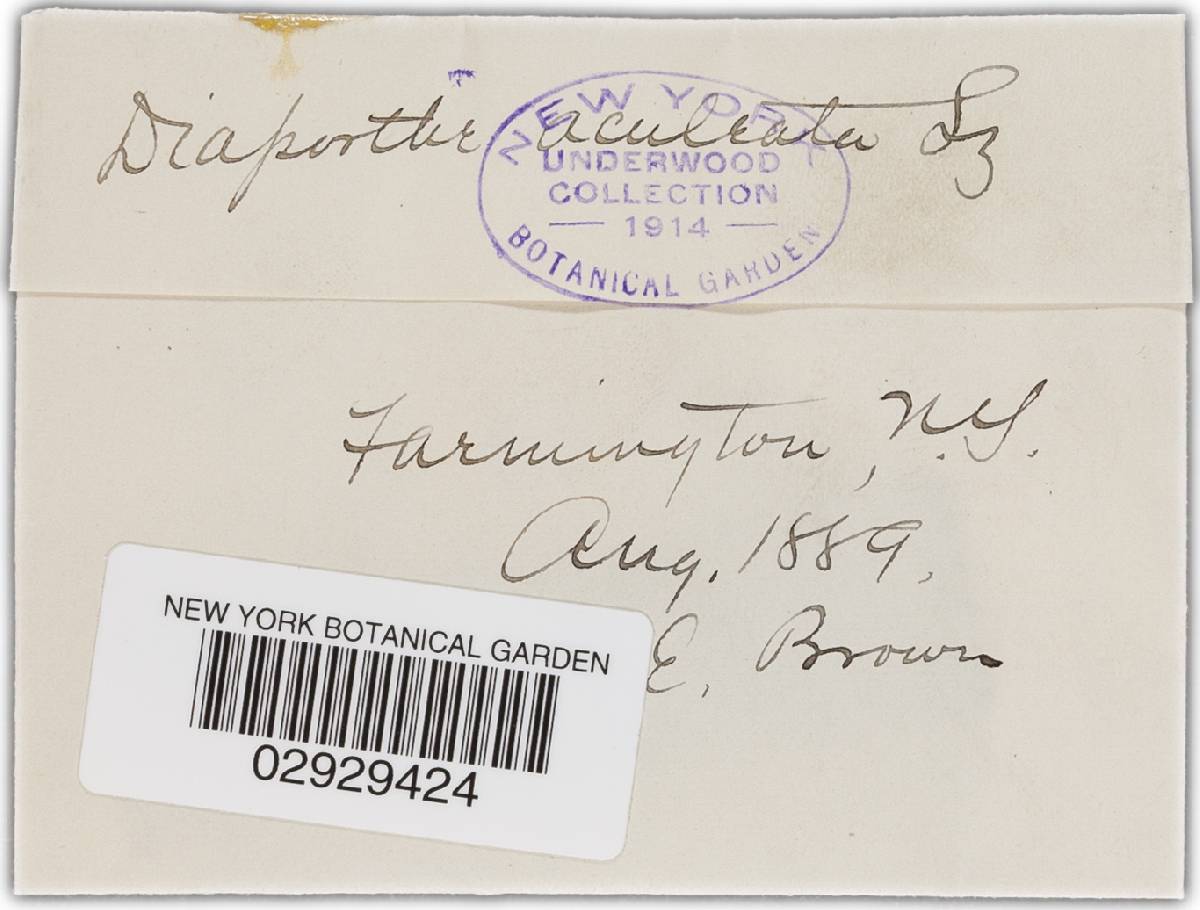 Diaporthe aculeata Sz
NEW YORK
UNDERWOOD
COLLECTION
— 1914 —
BOTANICAL GARDEN
Farmington, N.Y.
Aug. 1889.
E. Brown
NEW YORK BOTANICAL GARDEN
02929424